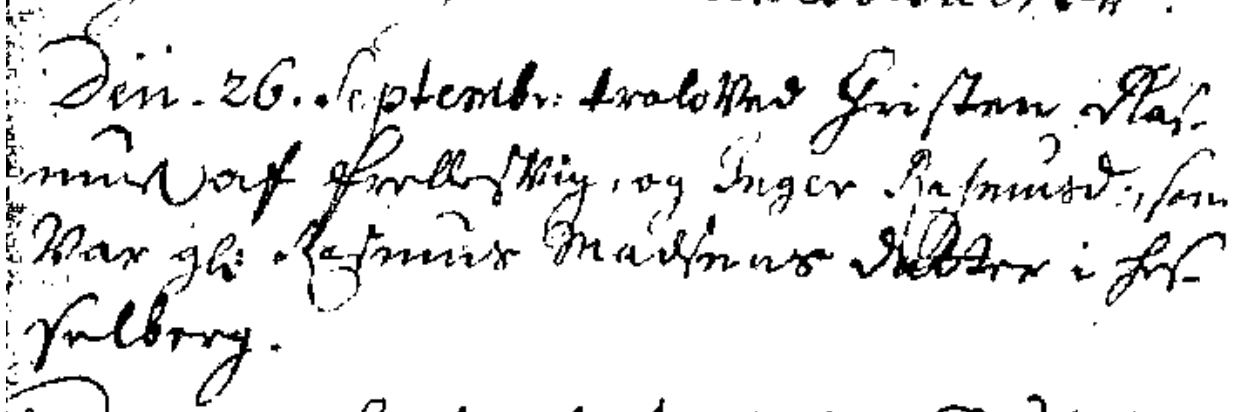 Den. 26. Septembr: troloved Christen Ras-
muss af Hellesvig, og Inger Rasmusd:, som
Var gl: Rasmus Madsens datter i Hes-
selberg.